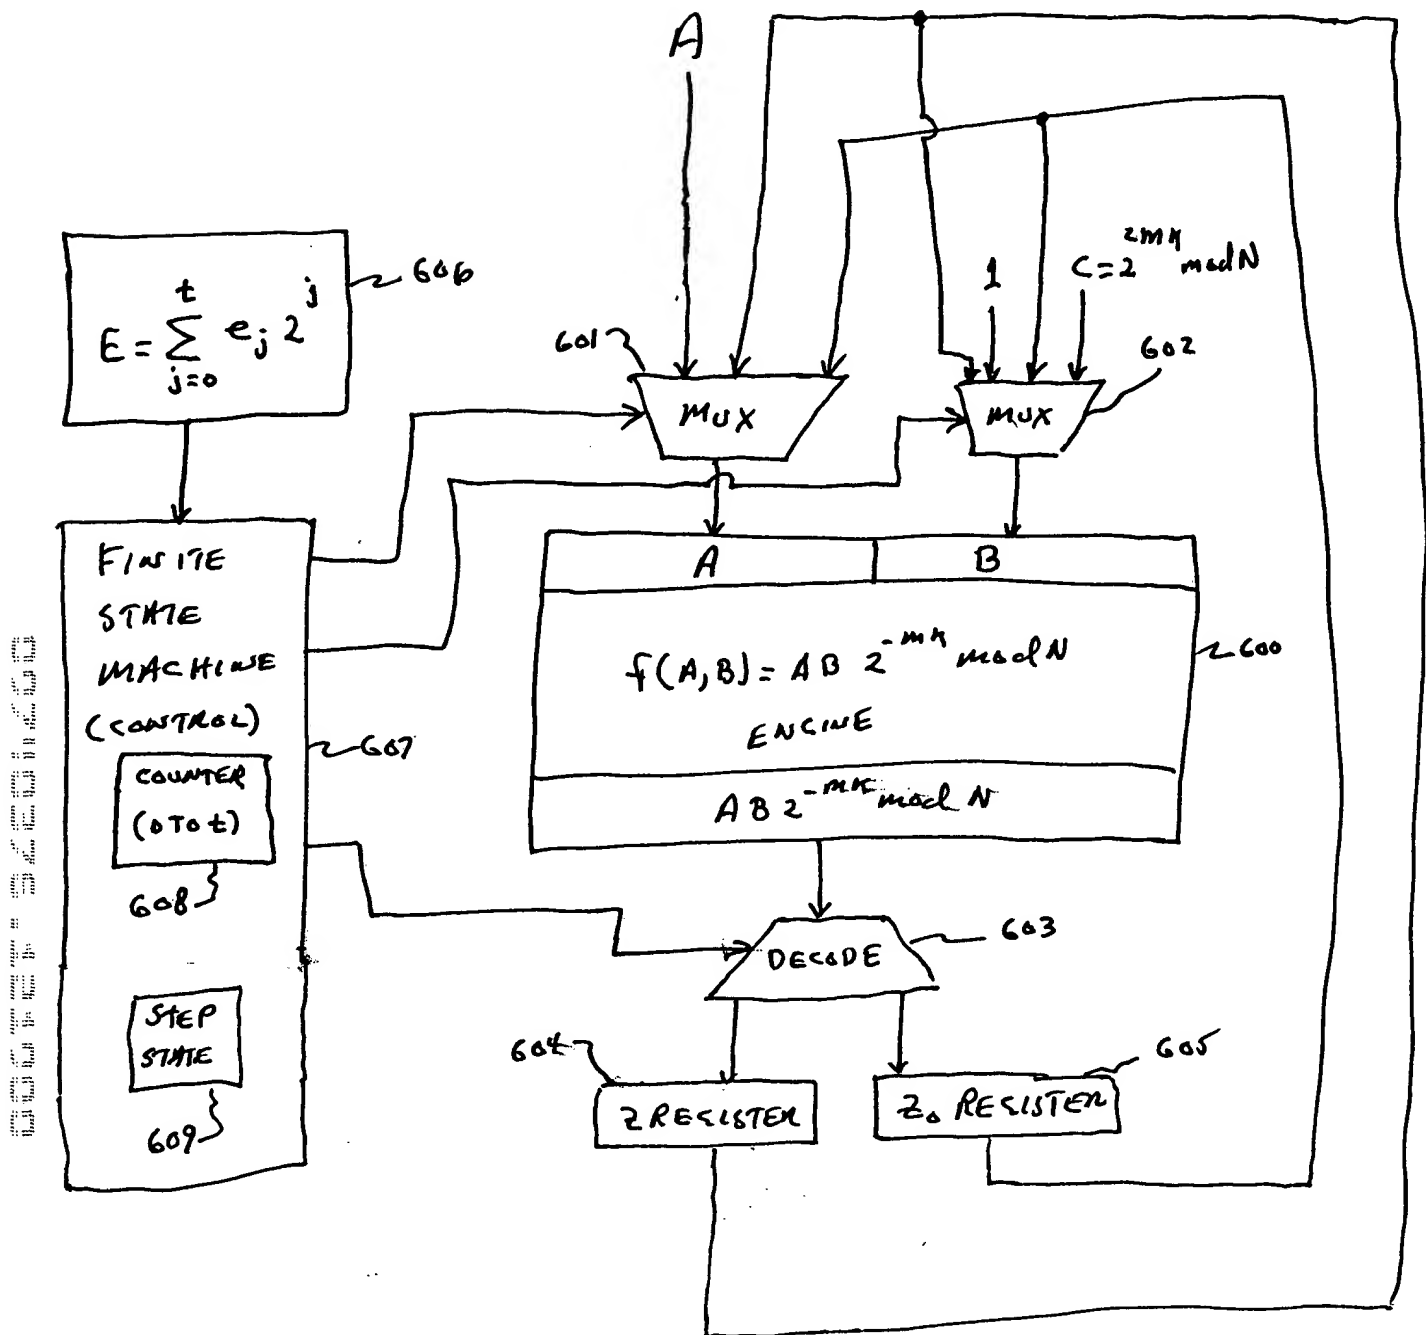 A
606
t
E = Σ e_j 2^j
j=0
1
C = 2^{2mk} mod N
601
602
MUX
MUX
FINITE
STATE
MACHINE
(CONTROL)
607
COUNTER
(0 TO t)
608
STEP
STATE
609
A
B
f(A,B) = AB 2^{-mk} mod N
ENGINE
600
AB 2^{-mk} mod N
DECODE
603
604
605
Z REGISTER
Z₀ REGISTER